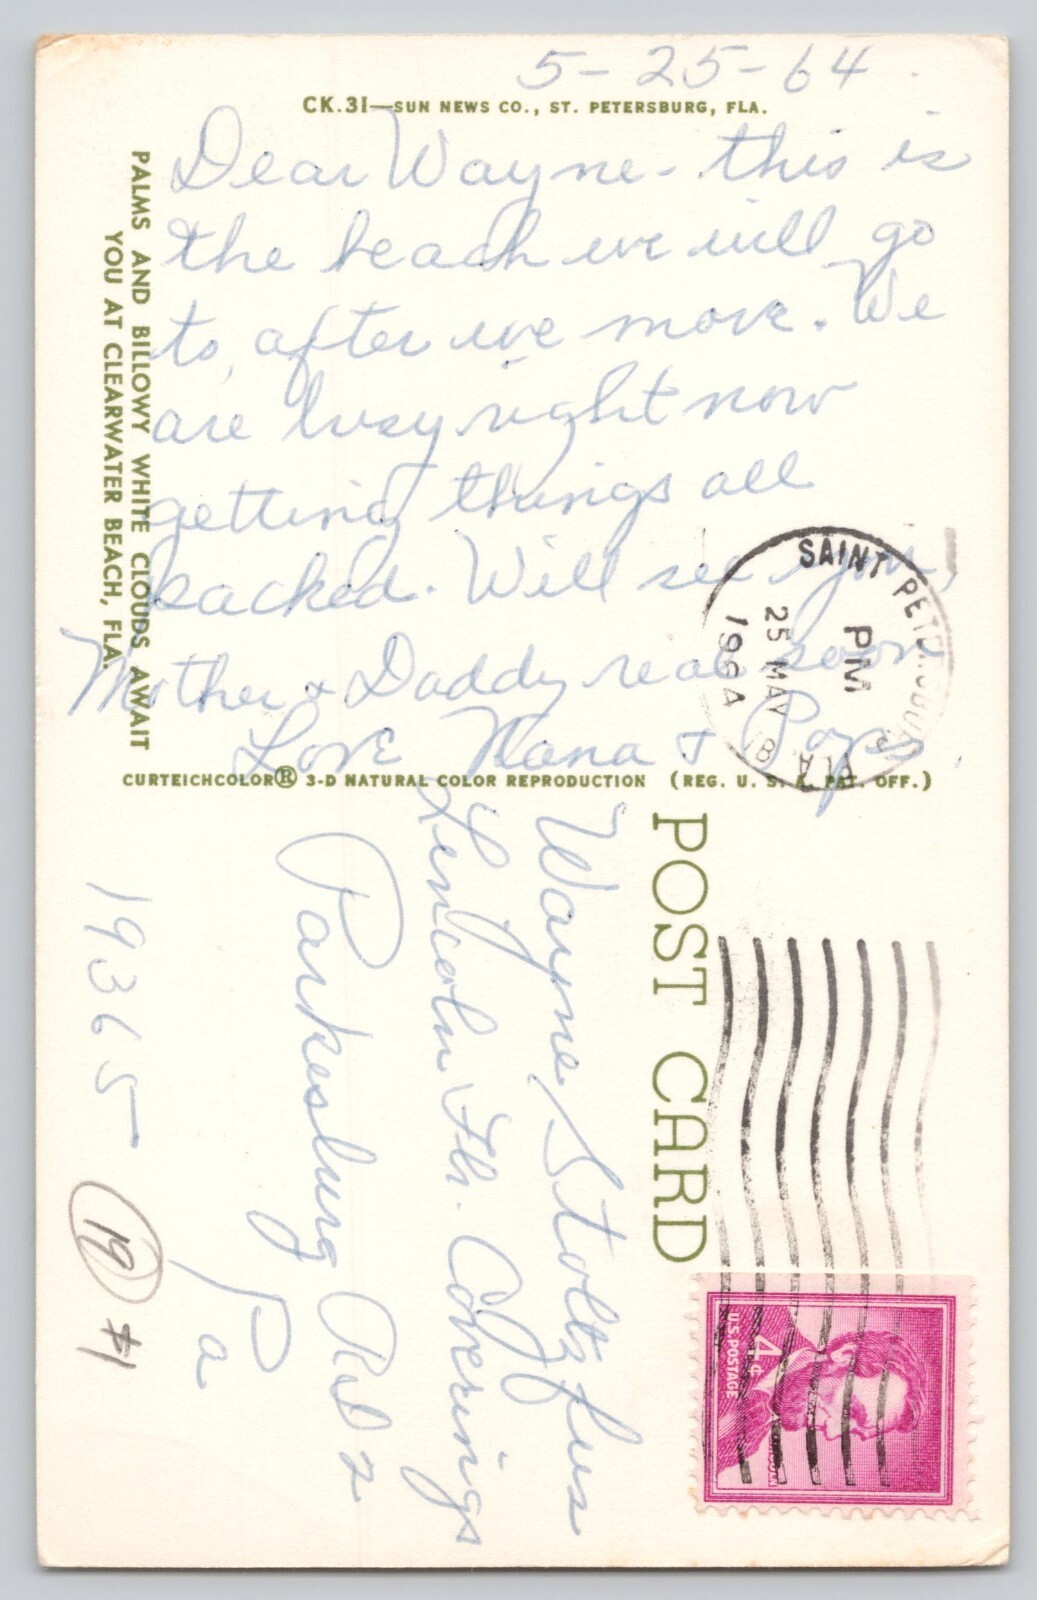 5-25-64
CK.31—SUN NEWS CO., ST. PETERSBURG, FLA.
PALMS AND BILLOWY WHITE CLOUDS AWAIT
YOU AT CLEARWATER BEACH, FLA.
Dear Wayne - this is
the beach we will go
to, after we move. We
are busy right now
getting things all
packed. Will see you,
Mother & Daddy real soon
Love Nana & Pops
CURTEICHCOLOR® 3-D NATURAL COLOR REPRODUCTION (REG. U. S. A. PAT. OFF.)
SAINT PETERSBURG FLA.
PM
25 MAY
1964
POST CARD
U.S. POSTAGE
4¢
LINCOLN
Wayne Stoltzfus
Lincoln Fl. Coverings
Parkesburg RD 2
Pa
19365
19
$1